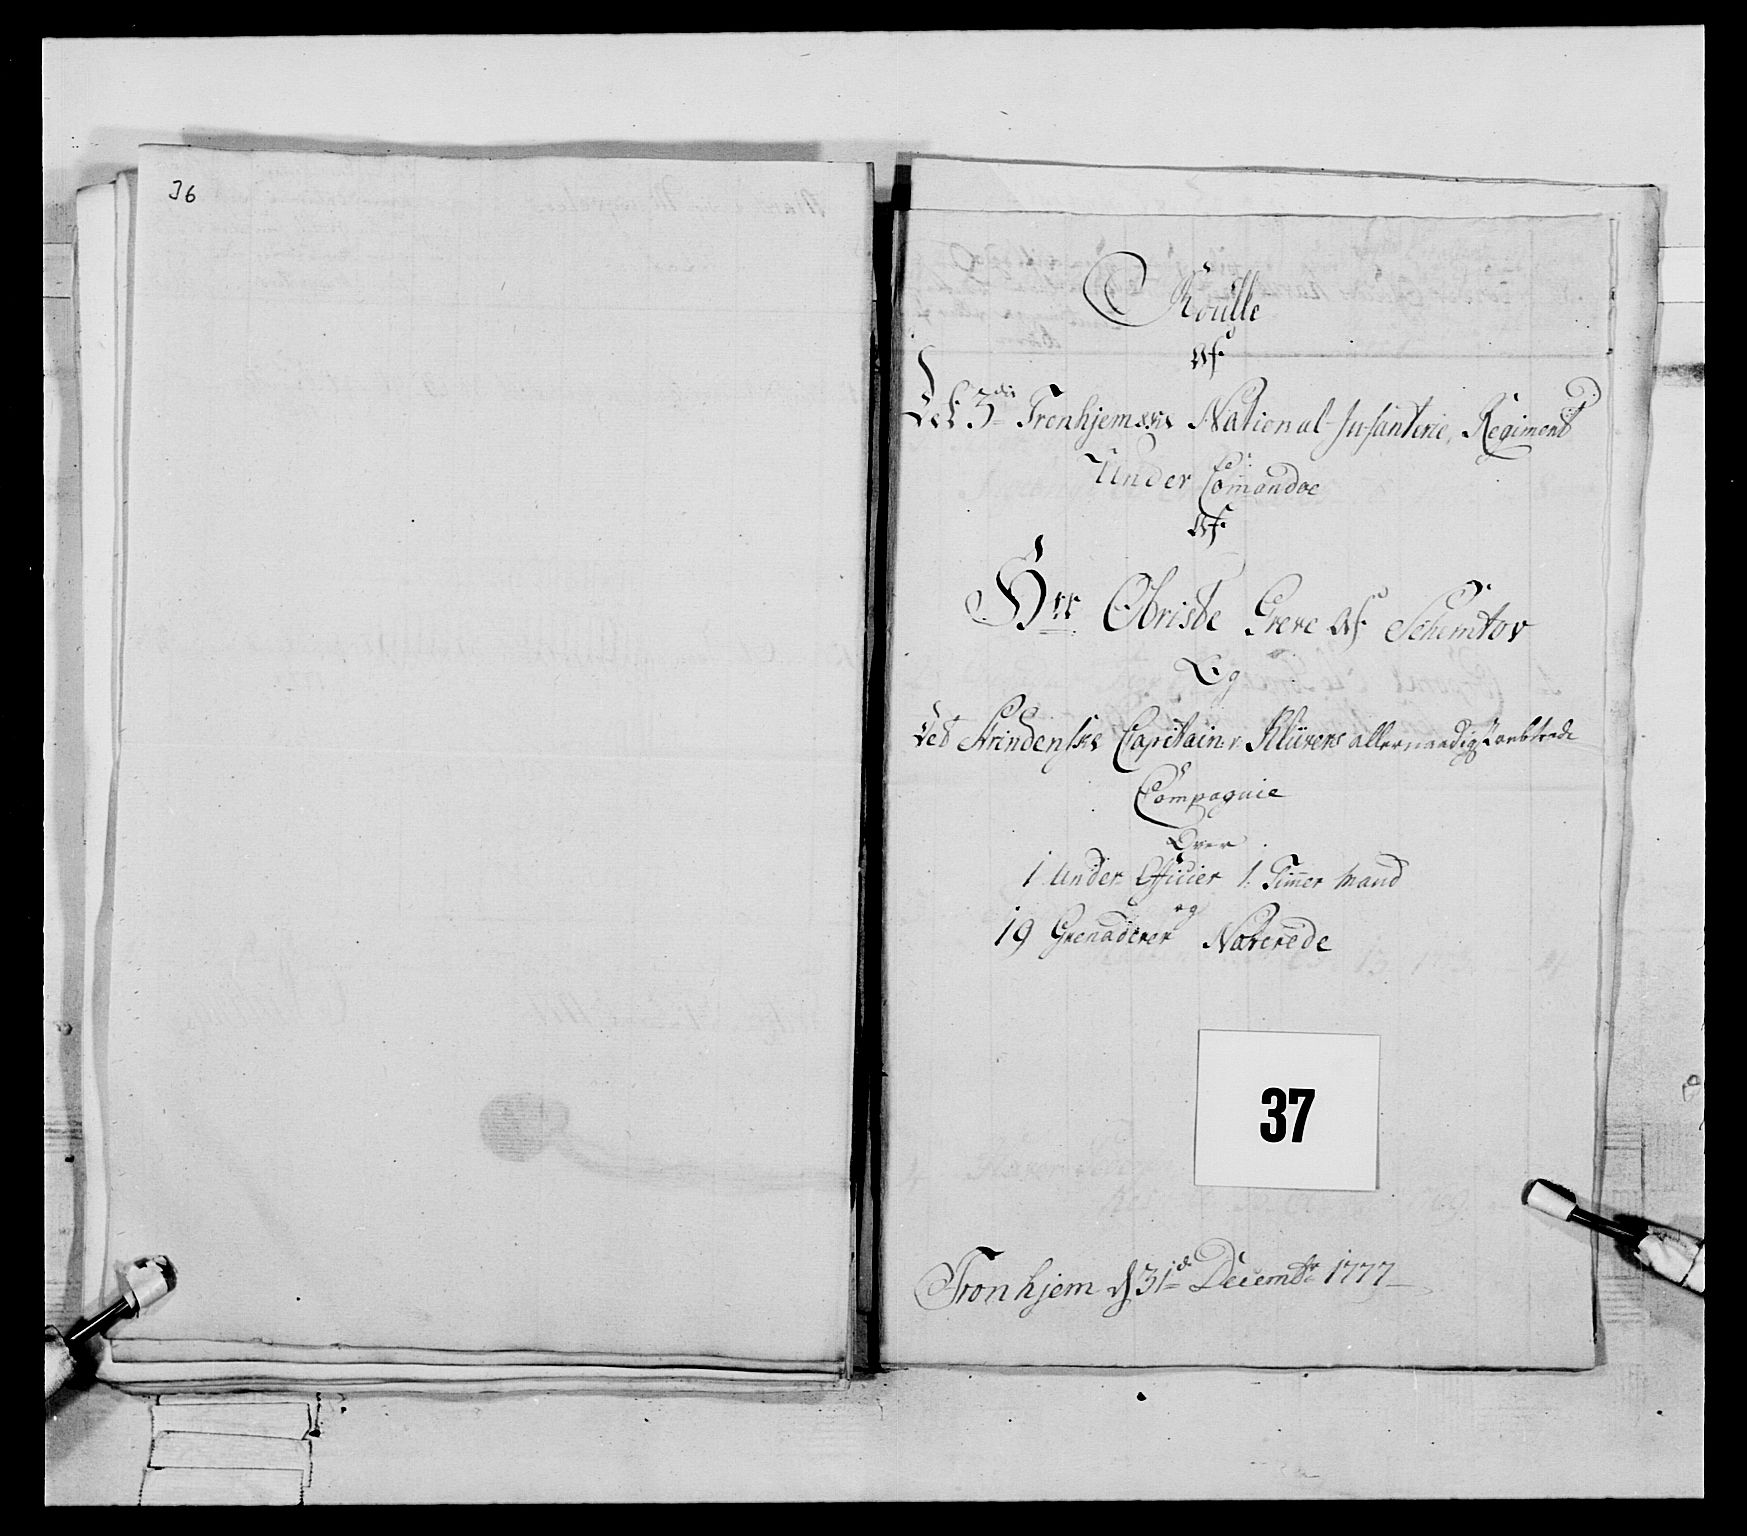 36
Roulle
Af
Det 3de Tronhjemske National Infanterie Regiment
Under Comandoe
Af
Hrr Obriste Greve Af Schmettov
Og
Det Strindenske Capitain v. Klüvers allernaadigst anbtrode
Compagnie
Over
1 Under Officier 1. Timer Mand
19 Grenaderer og Narerede
37
Tronhjem d 31de Decembr 1777